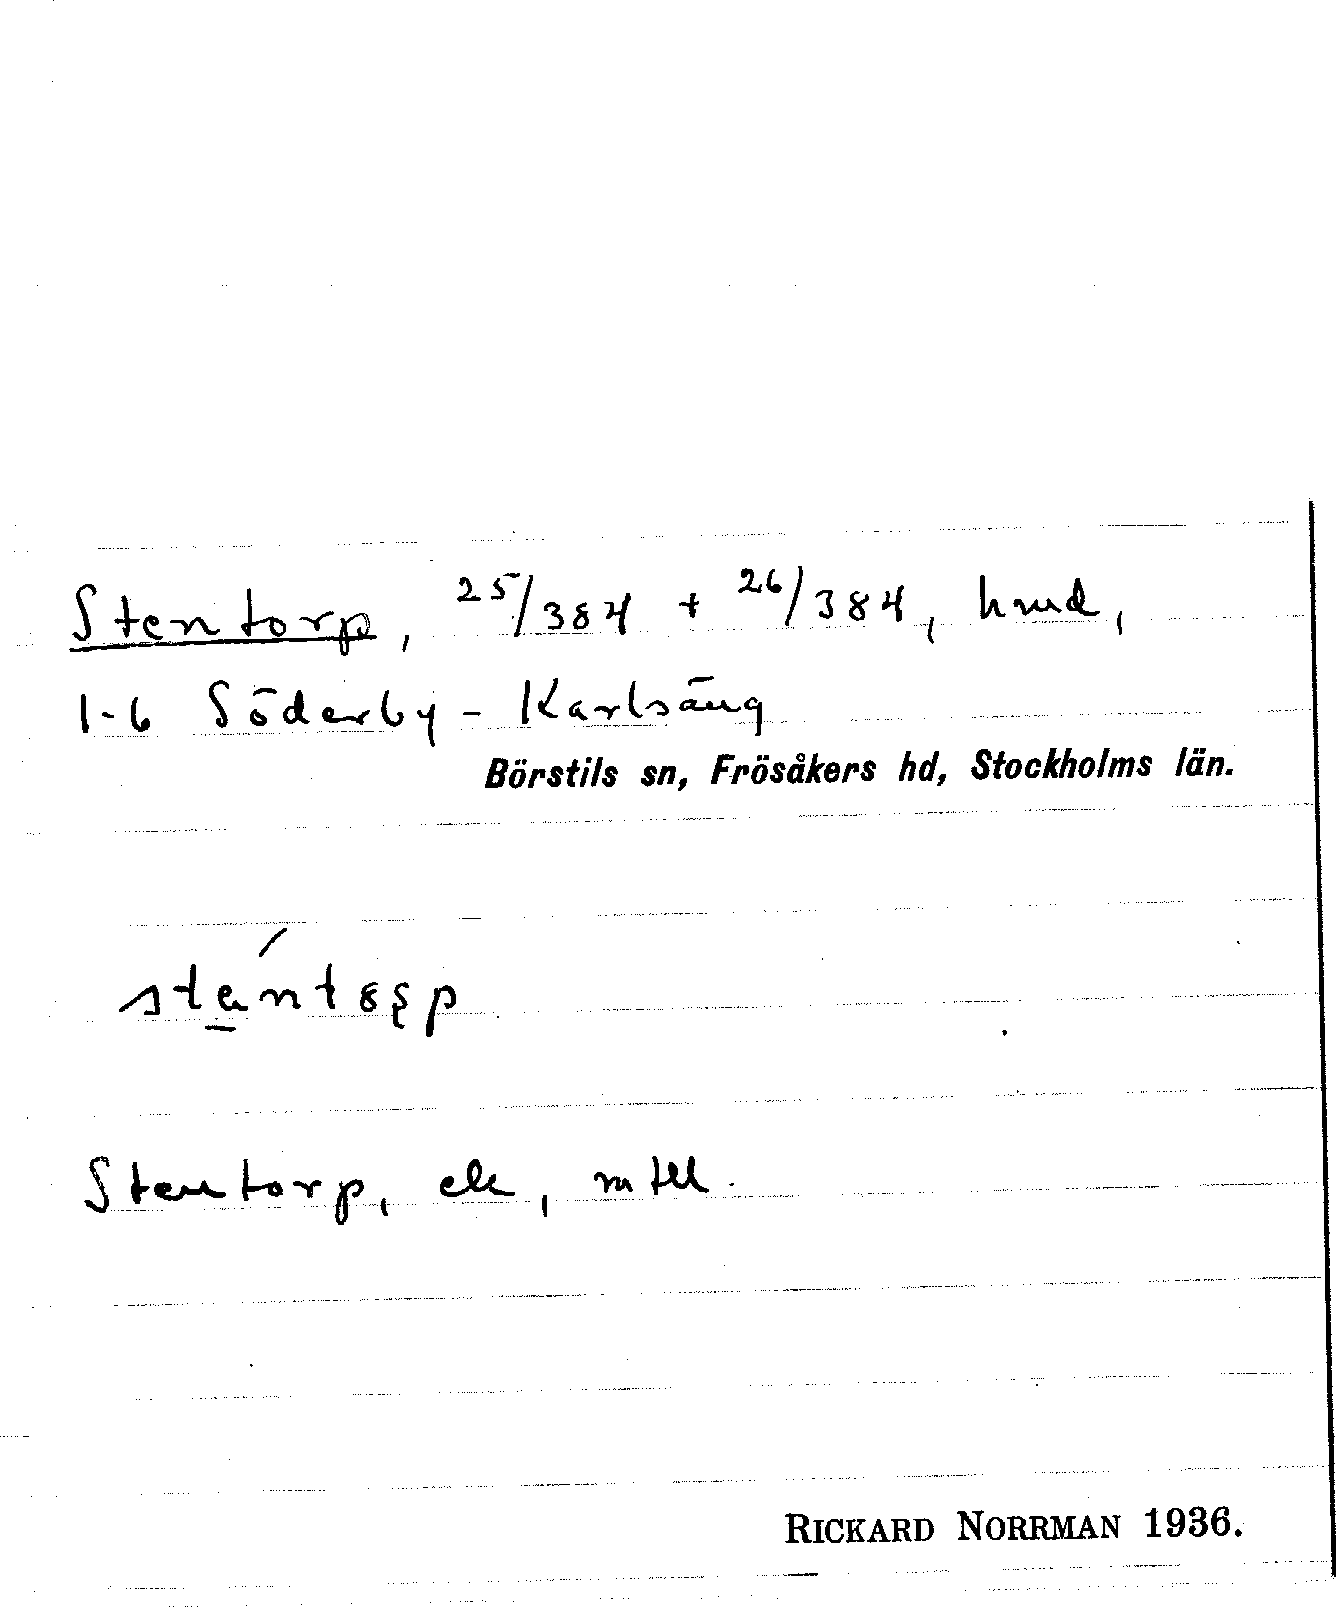 Stentorp, 25/384 + 26/384, hmd,
1-6 Söderby - Karlsäng
Börstils sn, Frösåkers hd, Stockholms län.
Stentorp, ek, mtll.
RICKARD NORRMAN 1936.